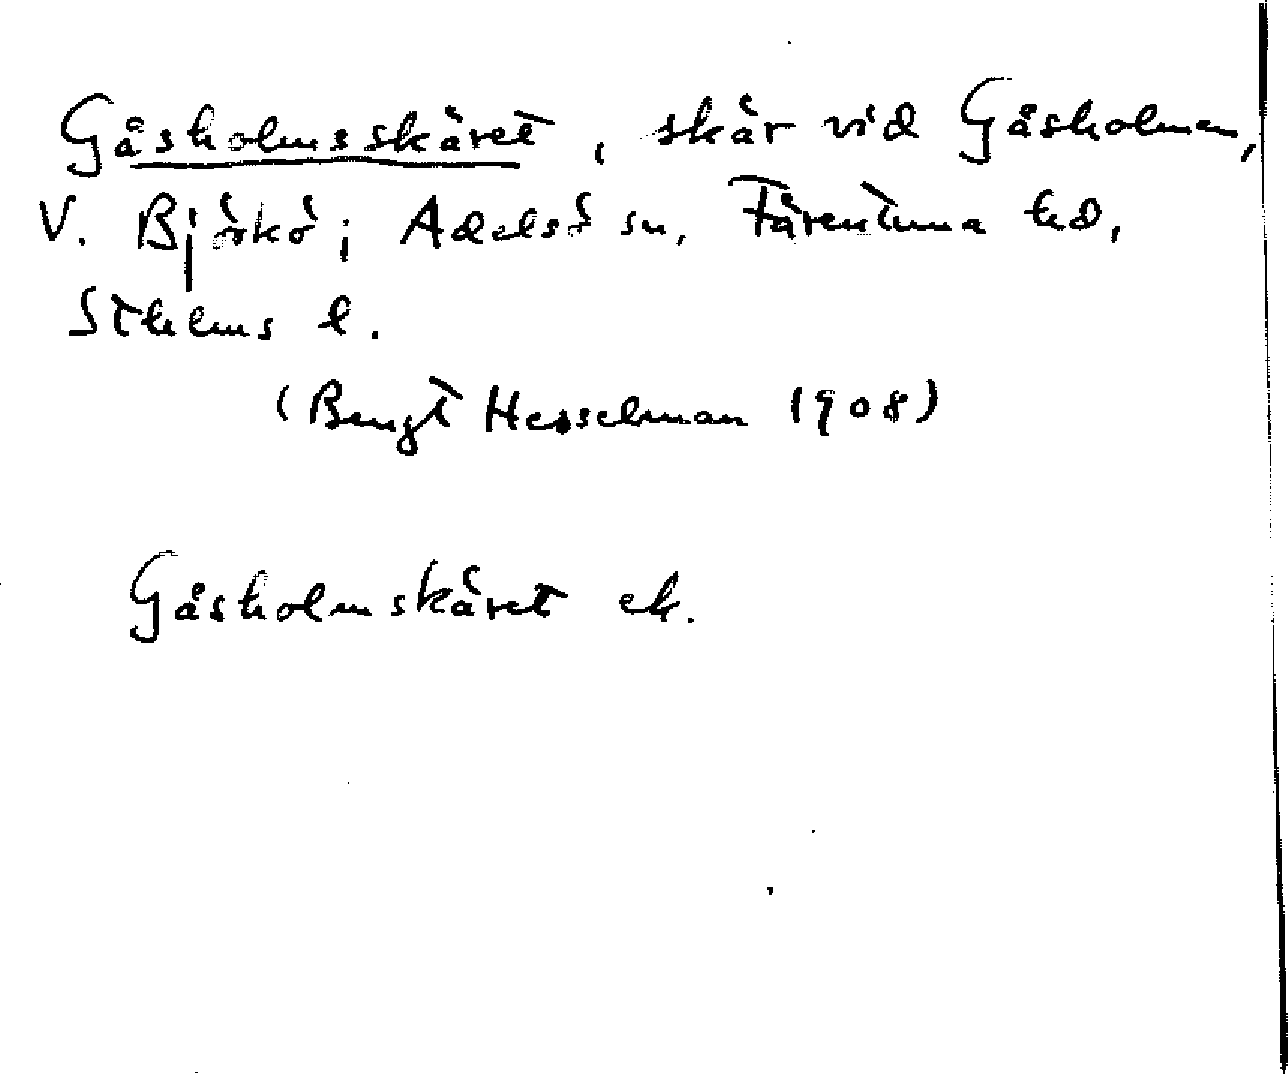 Gåsholmsskäret, skär vid Gåsholmen,
V. Björkö; Adelsö sn, Färentuna hd,
Sthlms l.
(Bengt Hesselman 1908)
Gåsholmskäret ek.